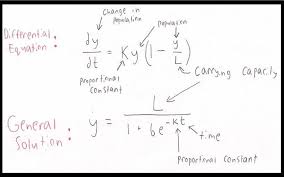 Change in population
population
Differential Equation :
dy/dt = Ky(1 - y/L)
proportional constant
Carrying Capacity
General Solution :
y = L / 1 + be^-kt
time
proportional constant